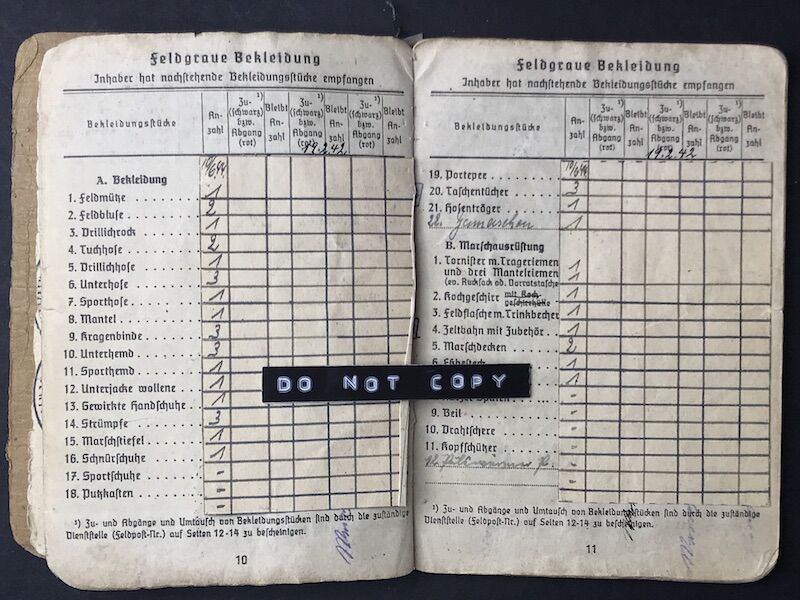 Feldgraue Bekleidung
Inhaber hat nachstehende Bekleidungsstücke empfangen
Bekleidungsstücke
An-
zahl
Zu- ¹)
(schwarz)
bzw.
Abgang
(rot)
Bleibt
An-
zahl
Zu- ¹)
(schwarz)
bzw.
Abgang
(rot)
Bleibt
An-
zahl
Zu- ¹)
(schwarz)
bzw.
Abgang
(rot)
Bleibt
An-
zahl
19.2.42
A. Bekleidung
1. Feldmütze 1
2. Feldbluse 2
3. Drillichrock 1
4. Tuchhose 2
5. Drillichhose 1
6. Unterhose 3
7. Sporthose 1
8. Mantel 1
9. Kragenbinde 3
10. Unterhemd 3
11. Sporthemd 1
12. Unterjacke wollene 1
13. Gewirkte Handschuhe 1
14. Strümpfe 3
15. Marschstiefel 1
16. Schnürschuhe 1
17. Sportschuhe -
18. Putzkasten -
¹) Zu- und Abgänge und Umtausch von Bekleidungsstücken sind durch die zuständige
Dienststelle (Feldpost-Nr.) auf Seiten 12-14 zu bescheinigen.
10
Feldgraue Bekleidung
Inhaber hat nachstehende Bekleidungsstücke empfangen
Bekleidungsstücke
An-
zahl
Zu- ¹)
(schwarz)
bzw.
Abgang
(rot)
Bleibt
An-
zahl
Zu- ¹)
(schwarz)
bzw.
Abgang
(rot)
Bleibt
An-
zahl
Zu- ¹)
(schwarz)
bzw.
Abgang
(rot)
Bleibt
An-
zahl
19.2.42
19. Portepee
20. Taschentücher 3
21. Hosenträger 1
22. Gamaschen 1
B. Marschausrüstung
1. Tornister m. Trageriemen 1
und drei Mantelriemen 1
(ev. Rucksack od. Vorratstasche
2. Kochgeschirr 1
3. Feldflasche m. Trinkbecher 1
4. Zeltbahn mit Zubehör 1
5. Marschdecken 2
6. Eßbesteck 1
9. Beil -
10. Drahtschere -
11. Kopfschützer -
¹) Zu- und Abgänge und Umtausch von Bekleidungsstücken sind durch die zuständige
Dienststelle (Feldpost-Nr.) auf Seiten 12-14 zu bescheinigen.
11
DO NOT COPY